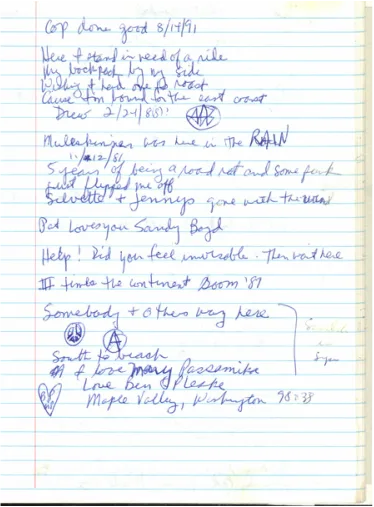 Cop done good 8/14/91
Here I stand in need of a ride
My backpack by my side
Wishing I had one to roast
Cause I'm bound for the east coast
Drew 2/24/88
Muleskinner was here in the RAIN
11/12/86
5 years of being a road rat and some fuck
just flipped me off
Silvette + Jennys gone with the wind
Pat Loves you Sandy Boyd
Help! Did you feel invisable. Then wait here
III times the continent Doom '87
Somebody + others way here
A
South to beach
I love Mary Passamika
Love Ben Pleake
Maple Valley, Washington